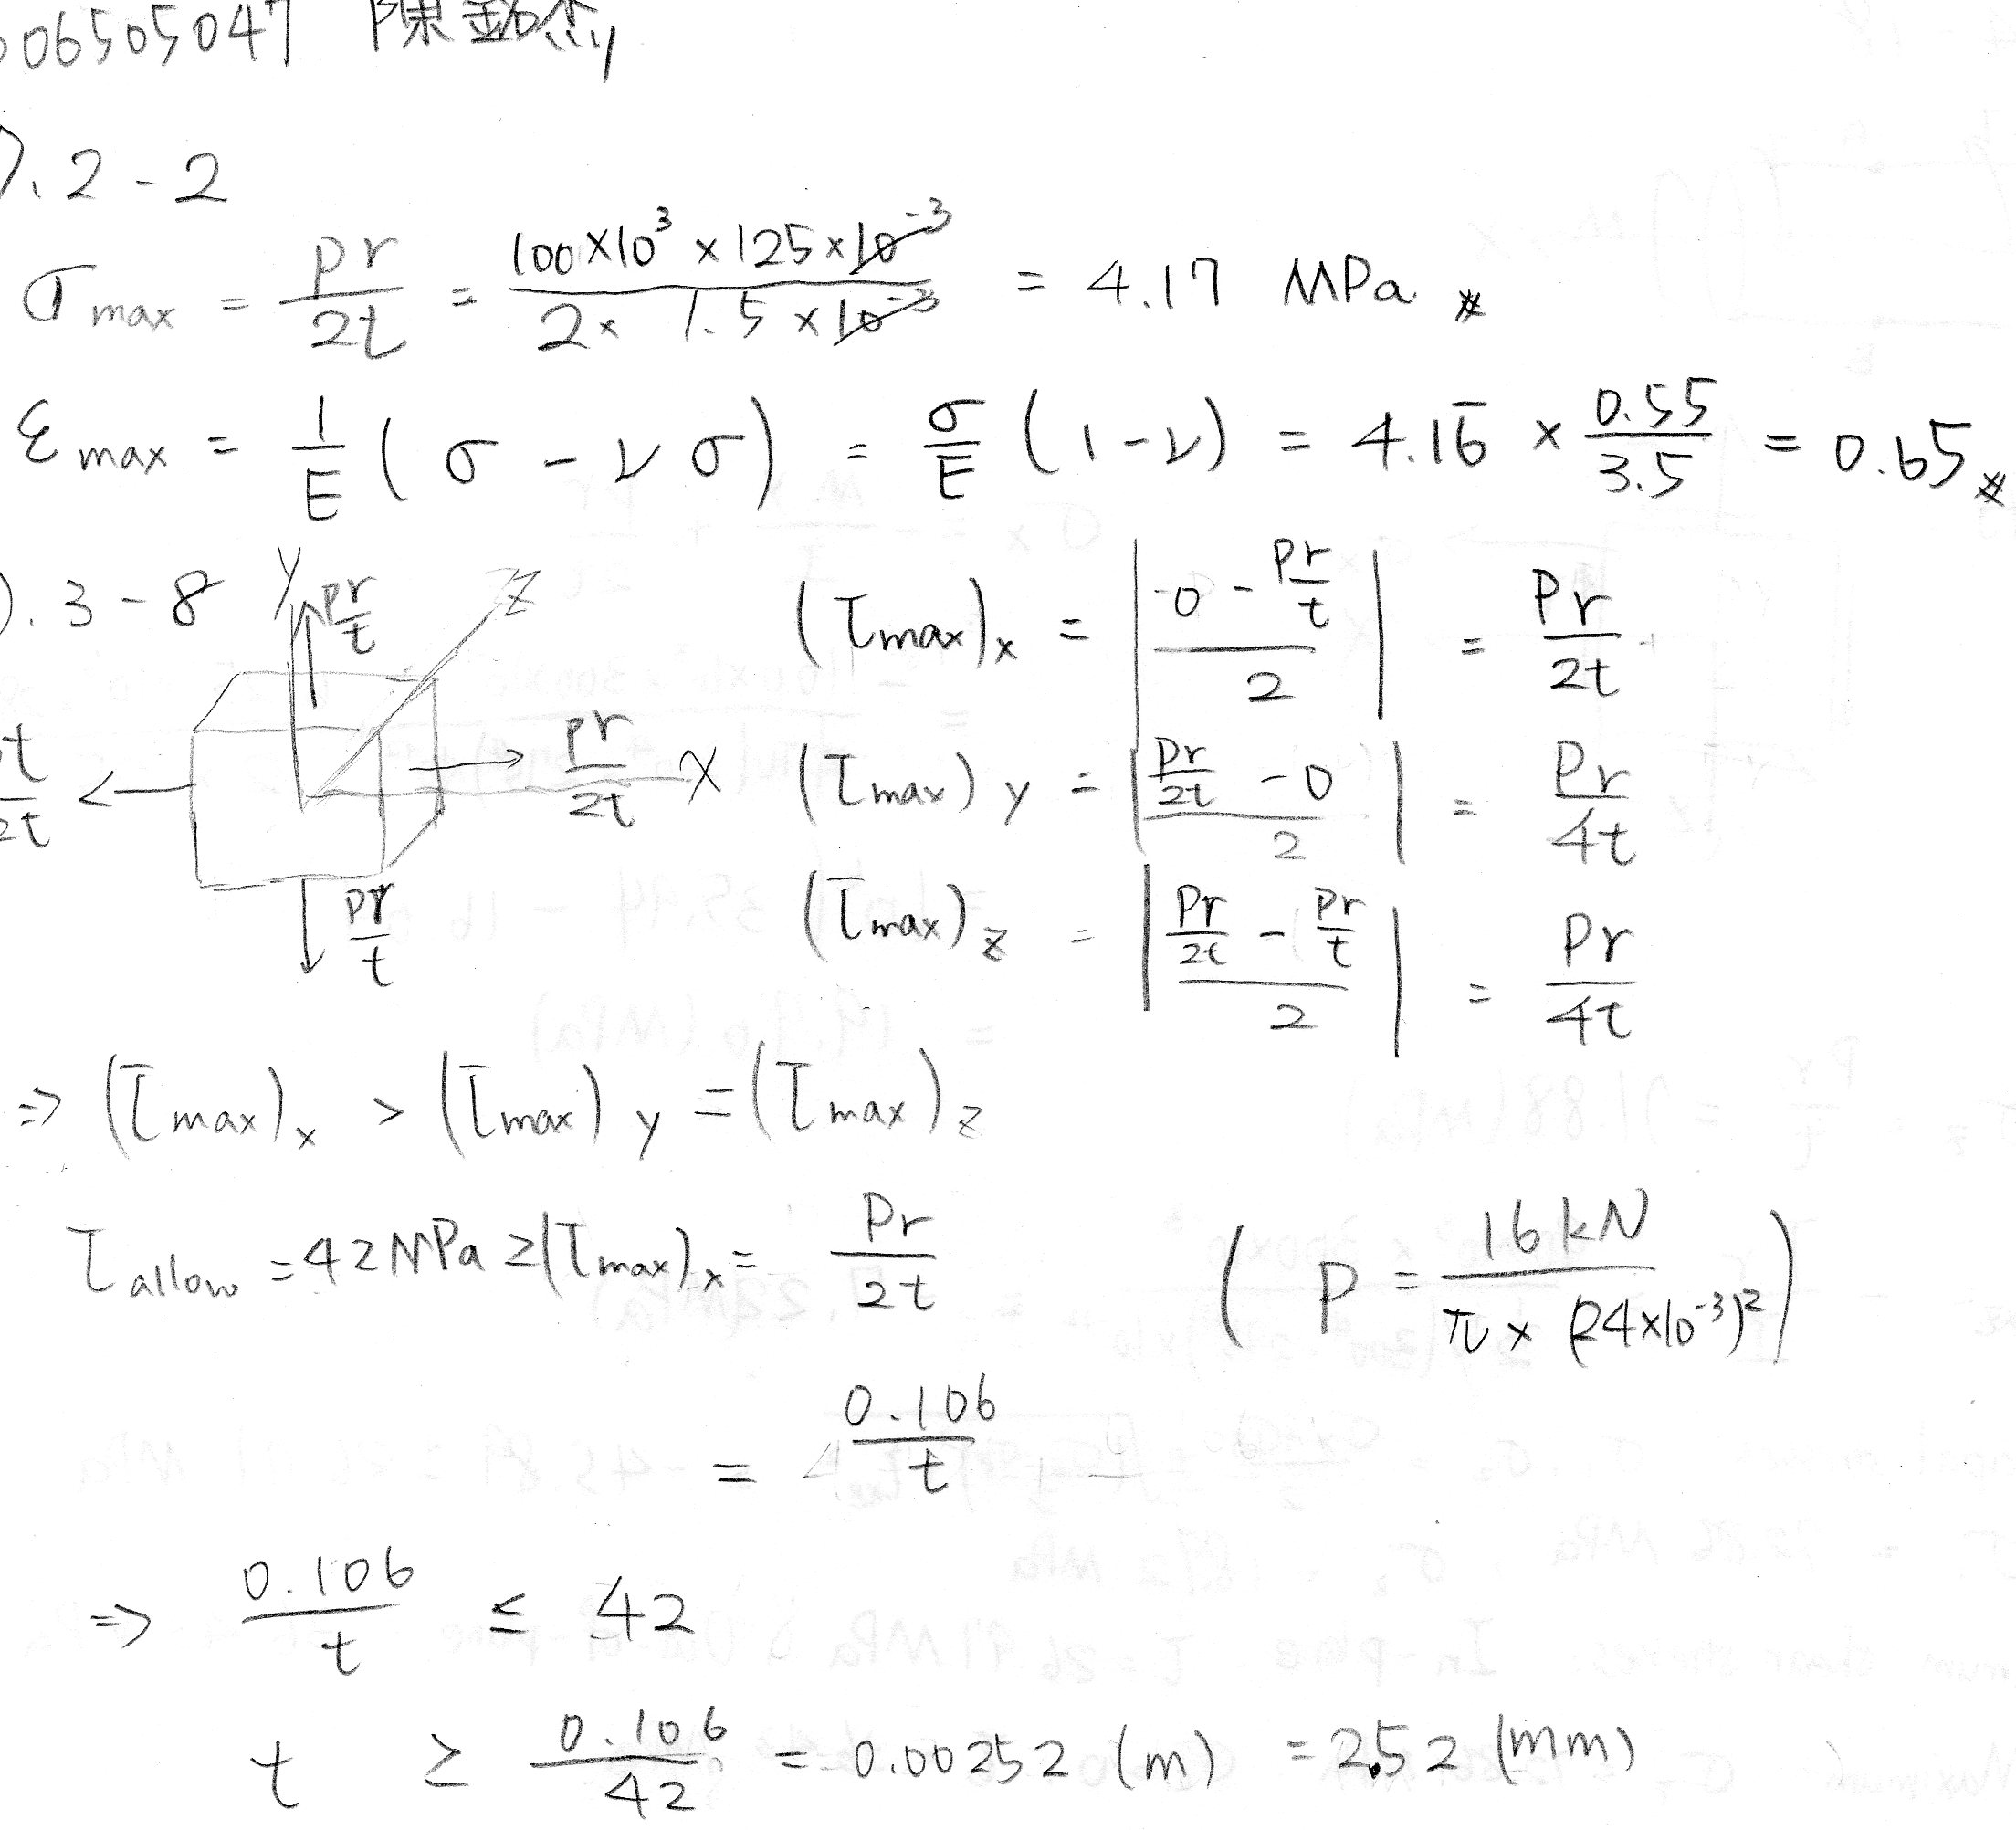 06505047 陳
7.2-2
σmax = pr/2t = 100×10³ × 125×10⁻³ / 2× 1.5×10⁻³ = 4.17 MPa ※
εmax = 1/E ( σ - ν σ ) = σ/E (1-ν) = 4.16̅ × 0.55/3.5 = 0.65 ※
).3-8
Y
Z
X
pr/t
pr/2t
pr/t
t/2t
(τmax)x = | 0 - pr/t / 2 | = Pr/2t
(τmax)y = | Pr/2t - 0 / 2 | = Pr/4t
(τmax)z = | Pr/2t - Pr/t / 2 | = Pr/4t
⇒ (τmax)x > (τmax)y = (τmax)z
τallow = 42 MPa ≥ (τmax)x = Pr/2t ( P = 16kN / π × (24×10⁻³)² )
= 0.106/t
⇒ 0.106/t ≤ 42
t ≥ 0.106/42 = 0.00252 (m) = 2.52 (mm)